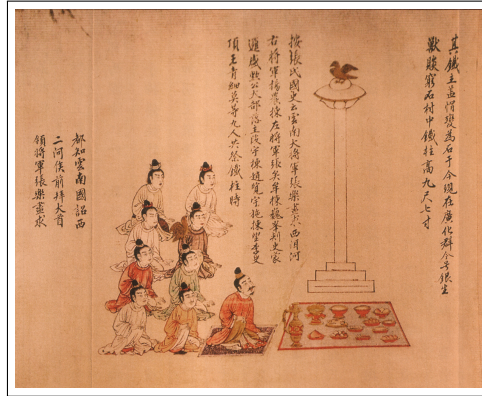 其鐵主蓋帽變為石于今現在廣化郡今号銀生
獸賧窮石村中鐵柱高九尺七寸
按張氏國史云雲南大將軍張樂盡求西洱河
右將軍楊農棟左將軍張矣牟棟巍峯刾史蒙
邏盛勳公大部落主段宇棟趙覽宇施棟望李史
頂王青細莫等九人共祭鐵柱時
都知雲南國詔西
二河侯前拜大首
領將軍張樂盡求